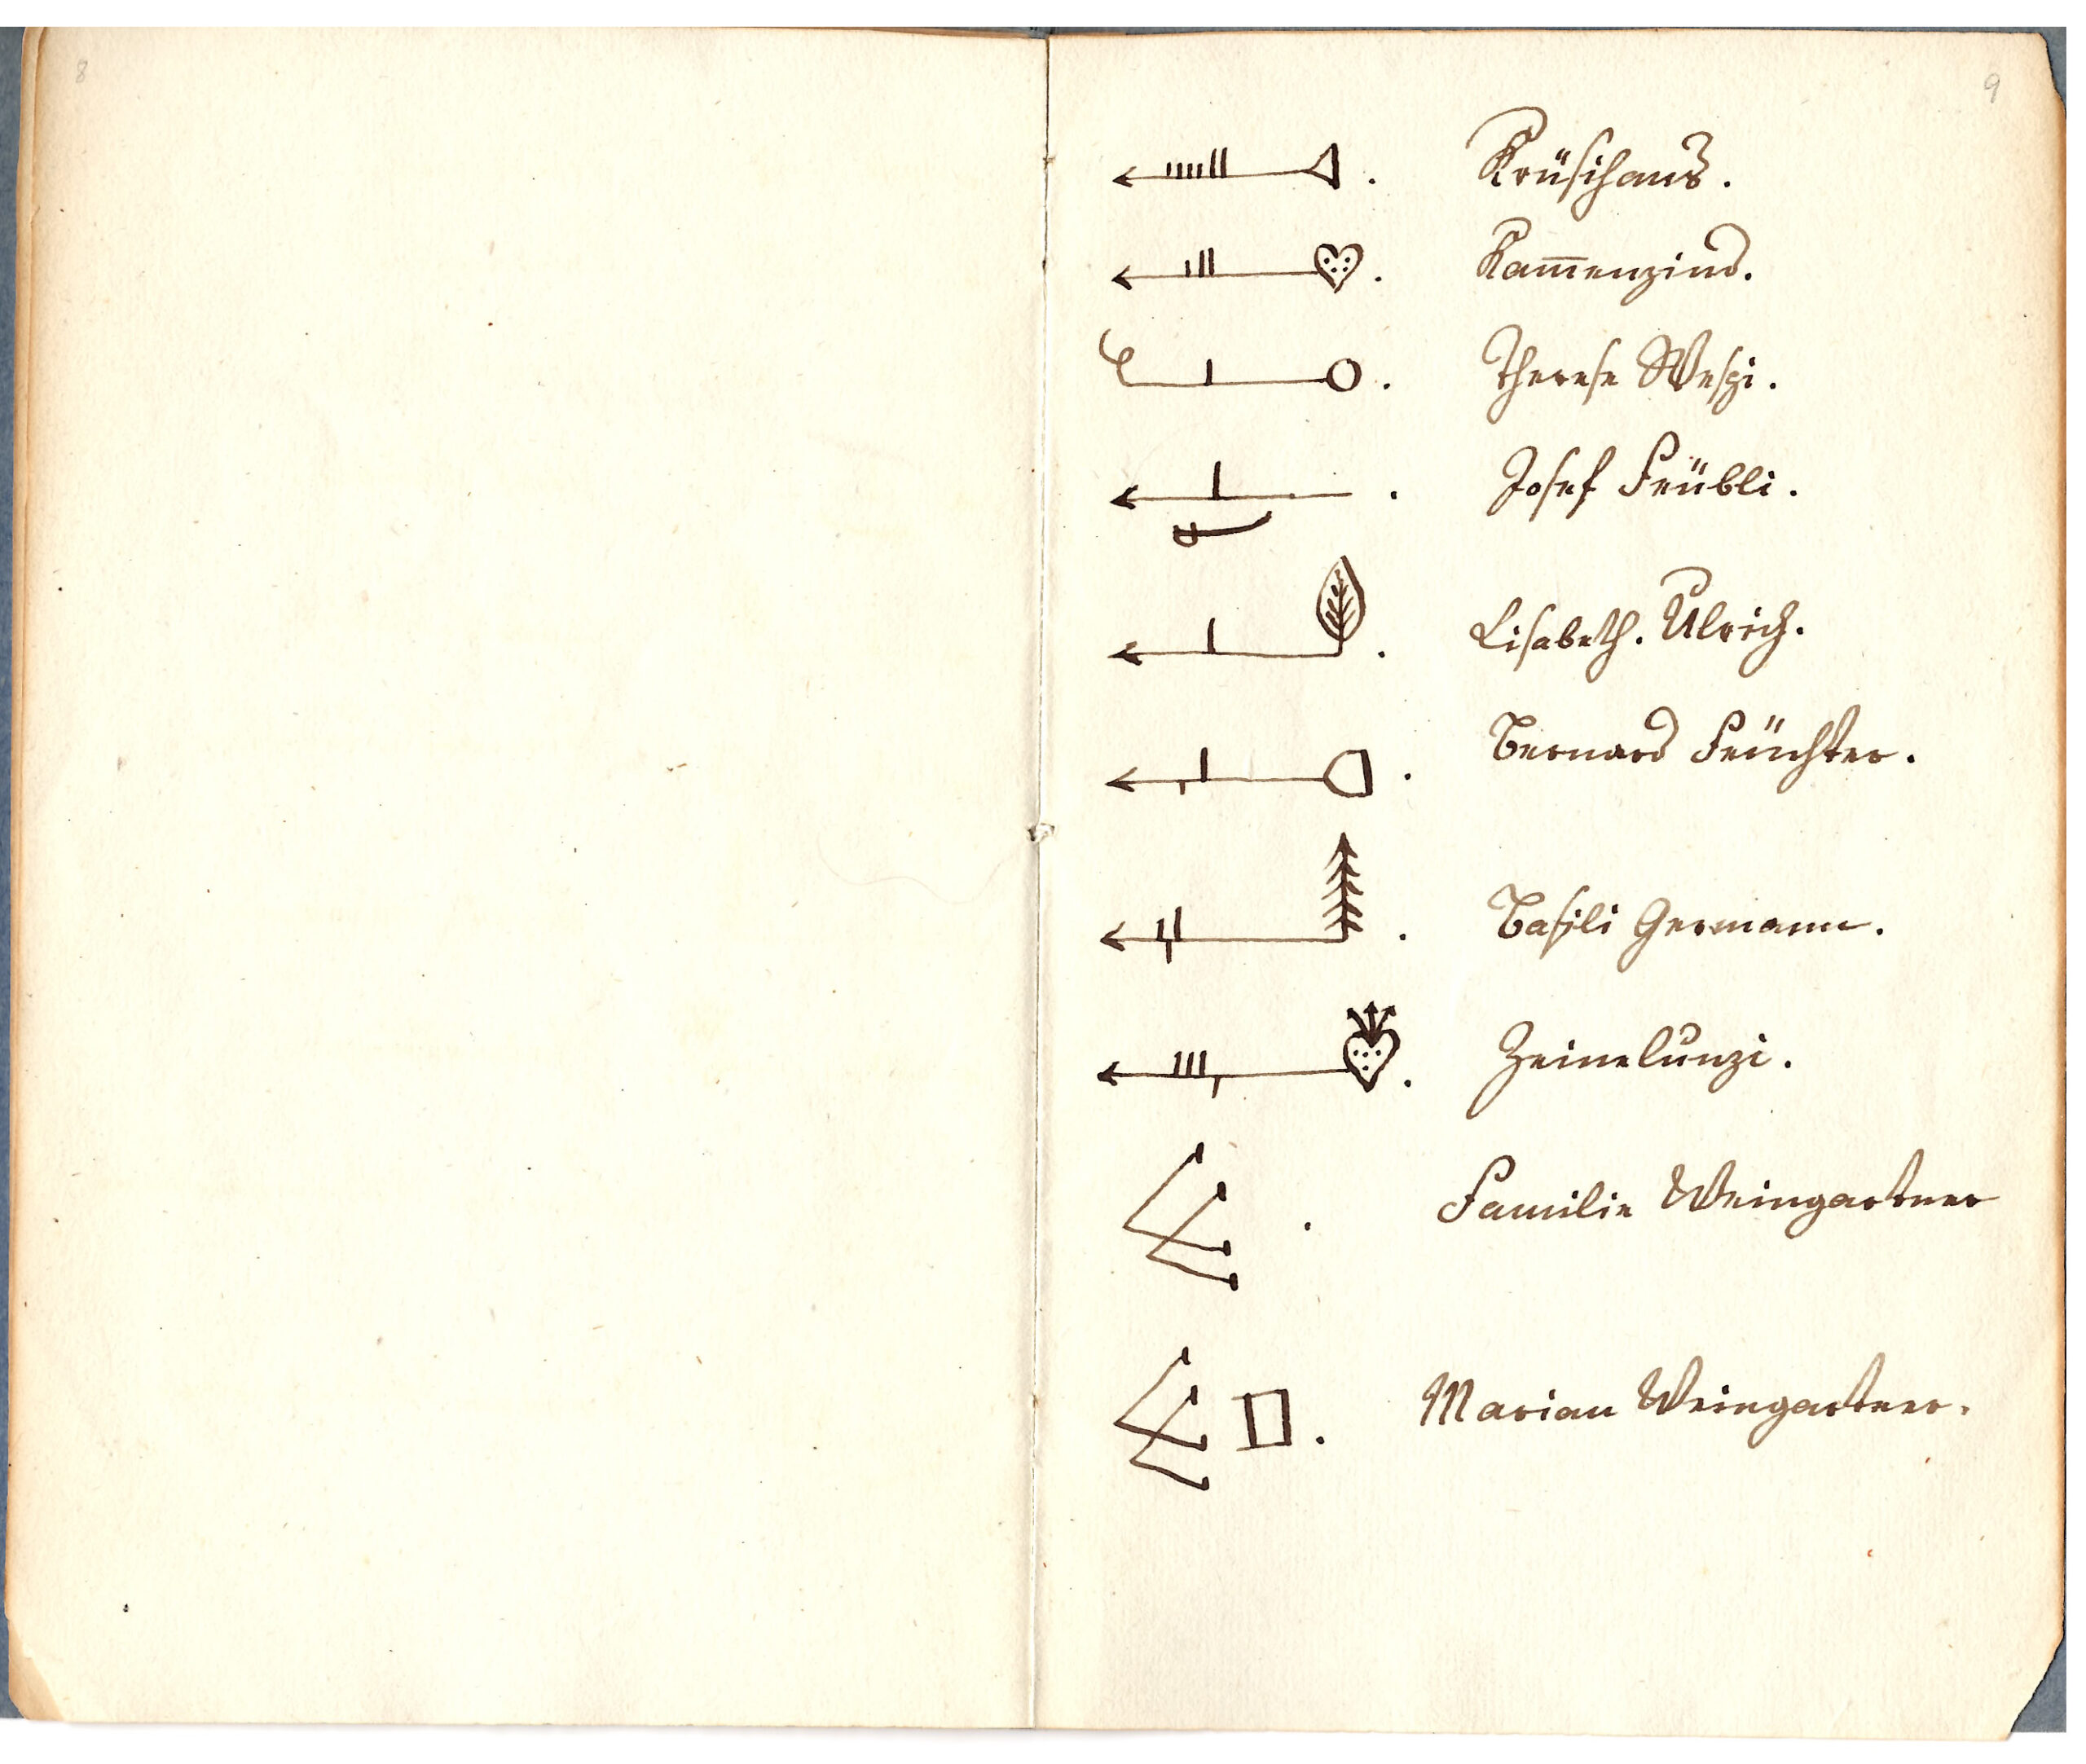 8
9
Krüsihans.
Kam̅enzind.
Therese Wespi.
Josef Freübli.
Lisabeth. Ulrich.
Bernard Feüchter.
Basili Germann.
Zeinelunzi.
Familie Weingartner
Marian Weingartner.